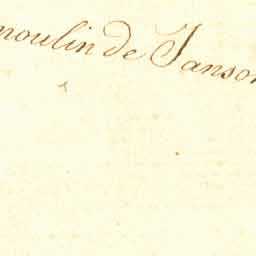 moulin de Janson